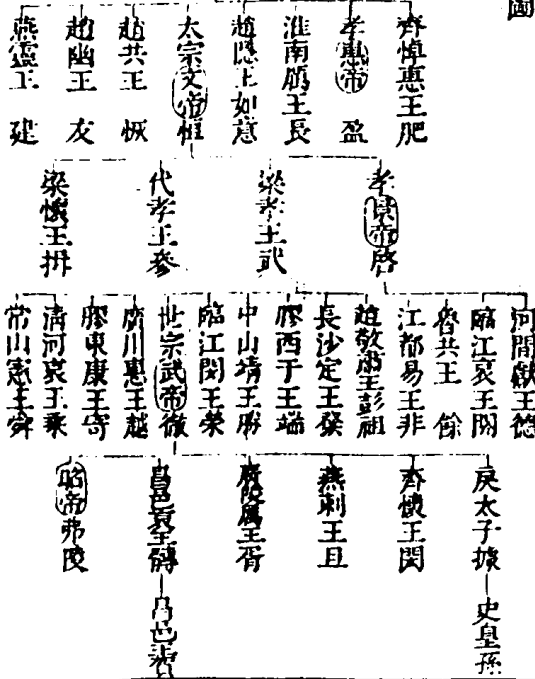 圖
齊悼惠王肥
孝惠帝 盈
淮南厲王長
趙隱王如意
太宗文帝恒
趙共王 恢
趙幽王 友
燕靈王 建
孝景帝啓
梁孝王武
代孝王參
梁懷王揖
河間獻王德
臨江哀王閼
魯共王 餘
江都易王非
趙敬肅王彭祖
長沙定王發
膠西于王端
中山靖王勝
臨江閔王榮
世宗武帝徹
廣川惠王越
膠東康王寄
清河哀王乘
常山憲王舜
戾太子據
史皇孫
齊懷王閎
燕剌王旦
廣陵厲王胥
昌邑哀王髆
昌邑
昭帝弗陵